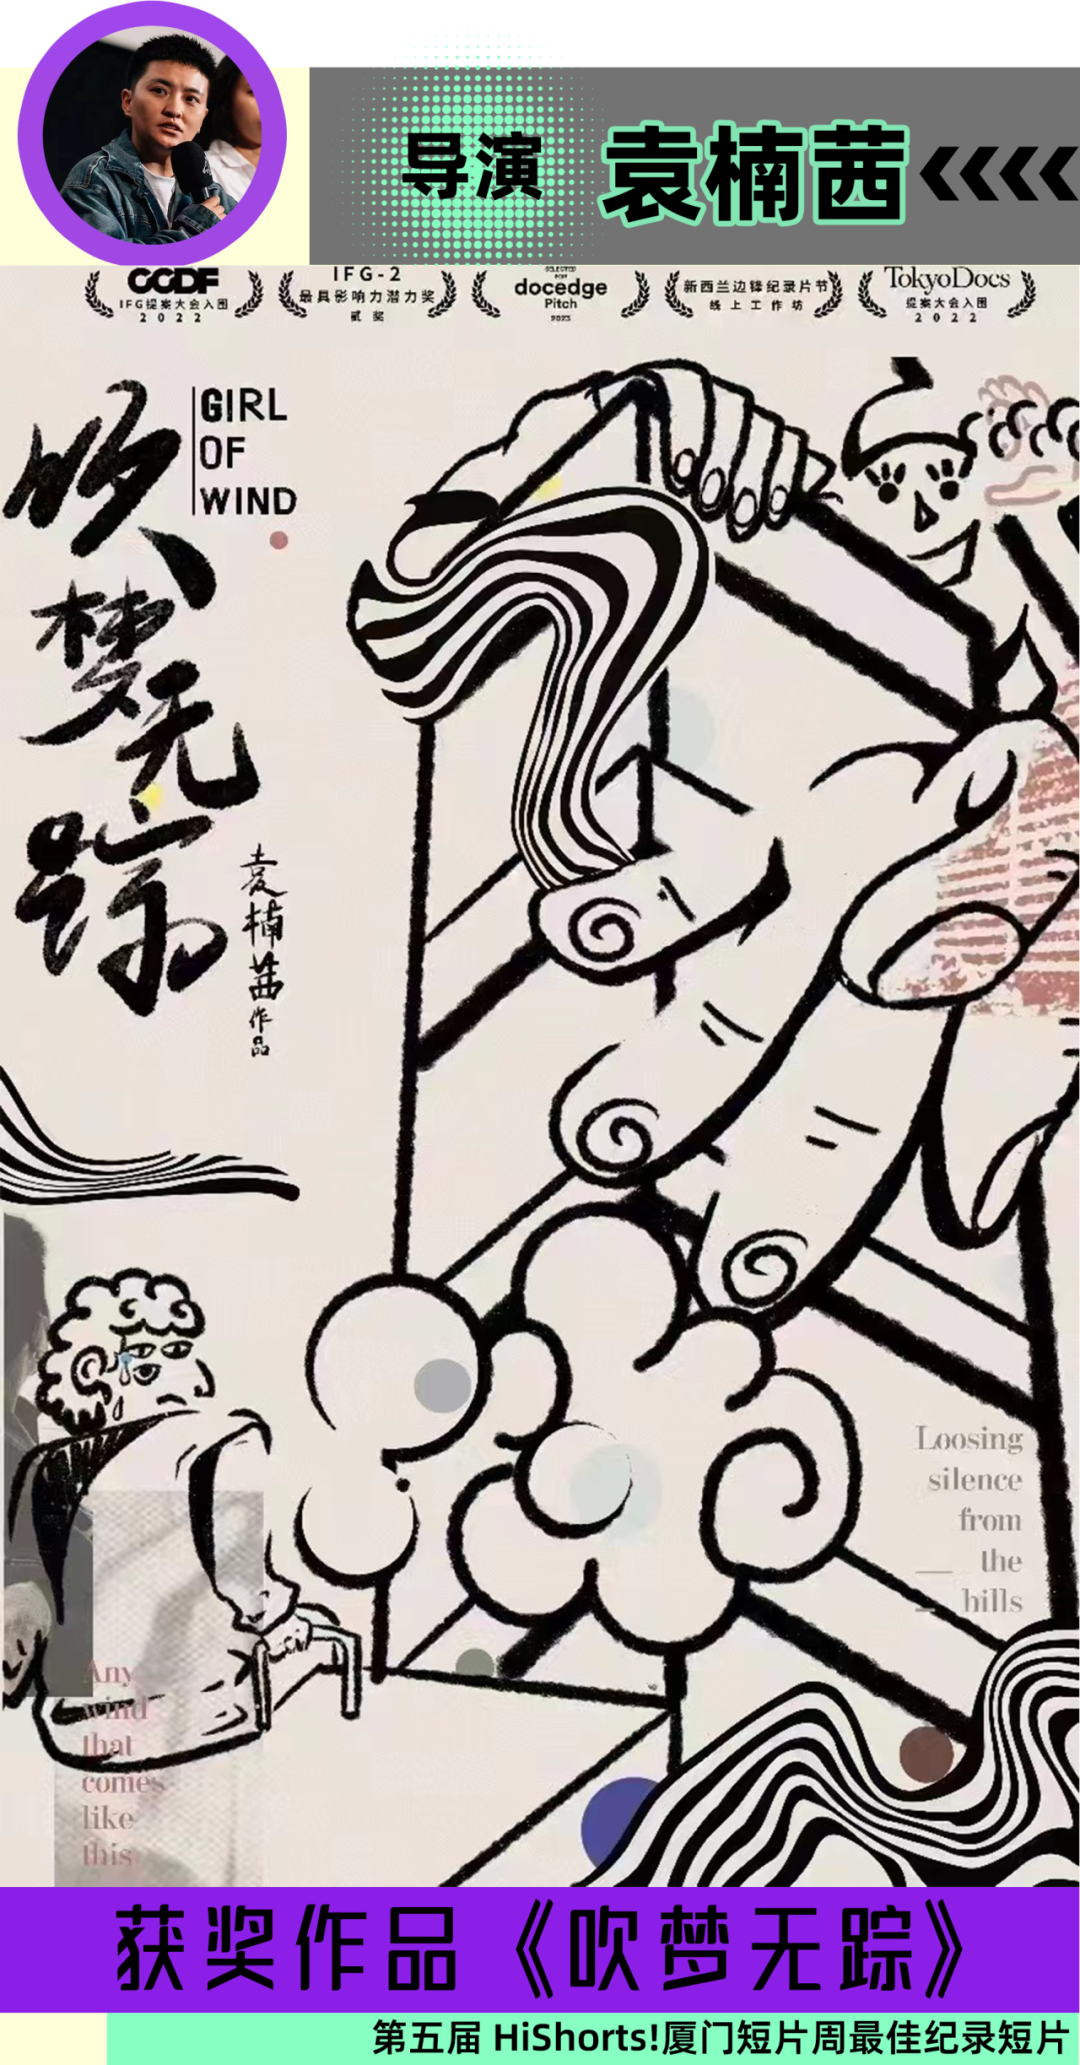 导演 袁楠茜
CCDF
IFG提案大会入围
2022
IFG-2
最具影响力潜力奖
贰奖
SELECTED
FOR
docedge
Pitch
2023
新西兰边锋纪录片节
线上工作坊
TokyoDocs
提案大会入围
2022
吹梦无踪
GIRL
OF
WIND
袁楠茜作品
Loosing
silence
from
the
hills
Any
wind
that
comes
like
this
获奖作品《吹梦无踪》
第五届 HiShorts!厦门短片周最佳纪录短片